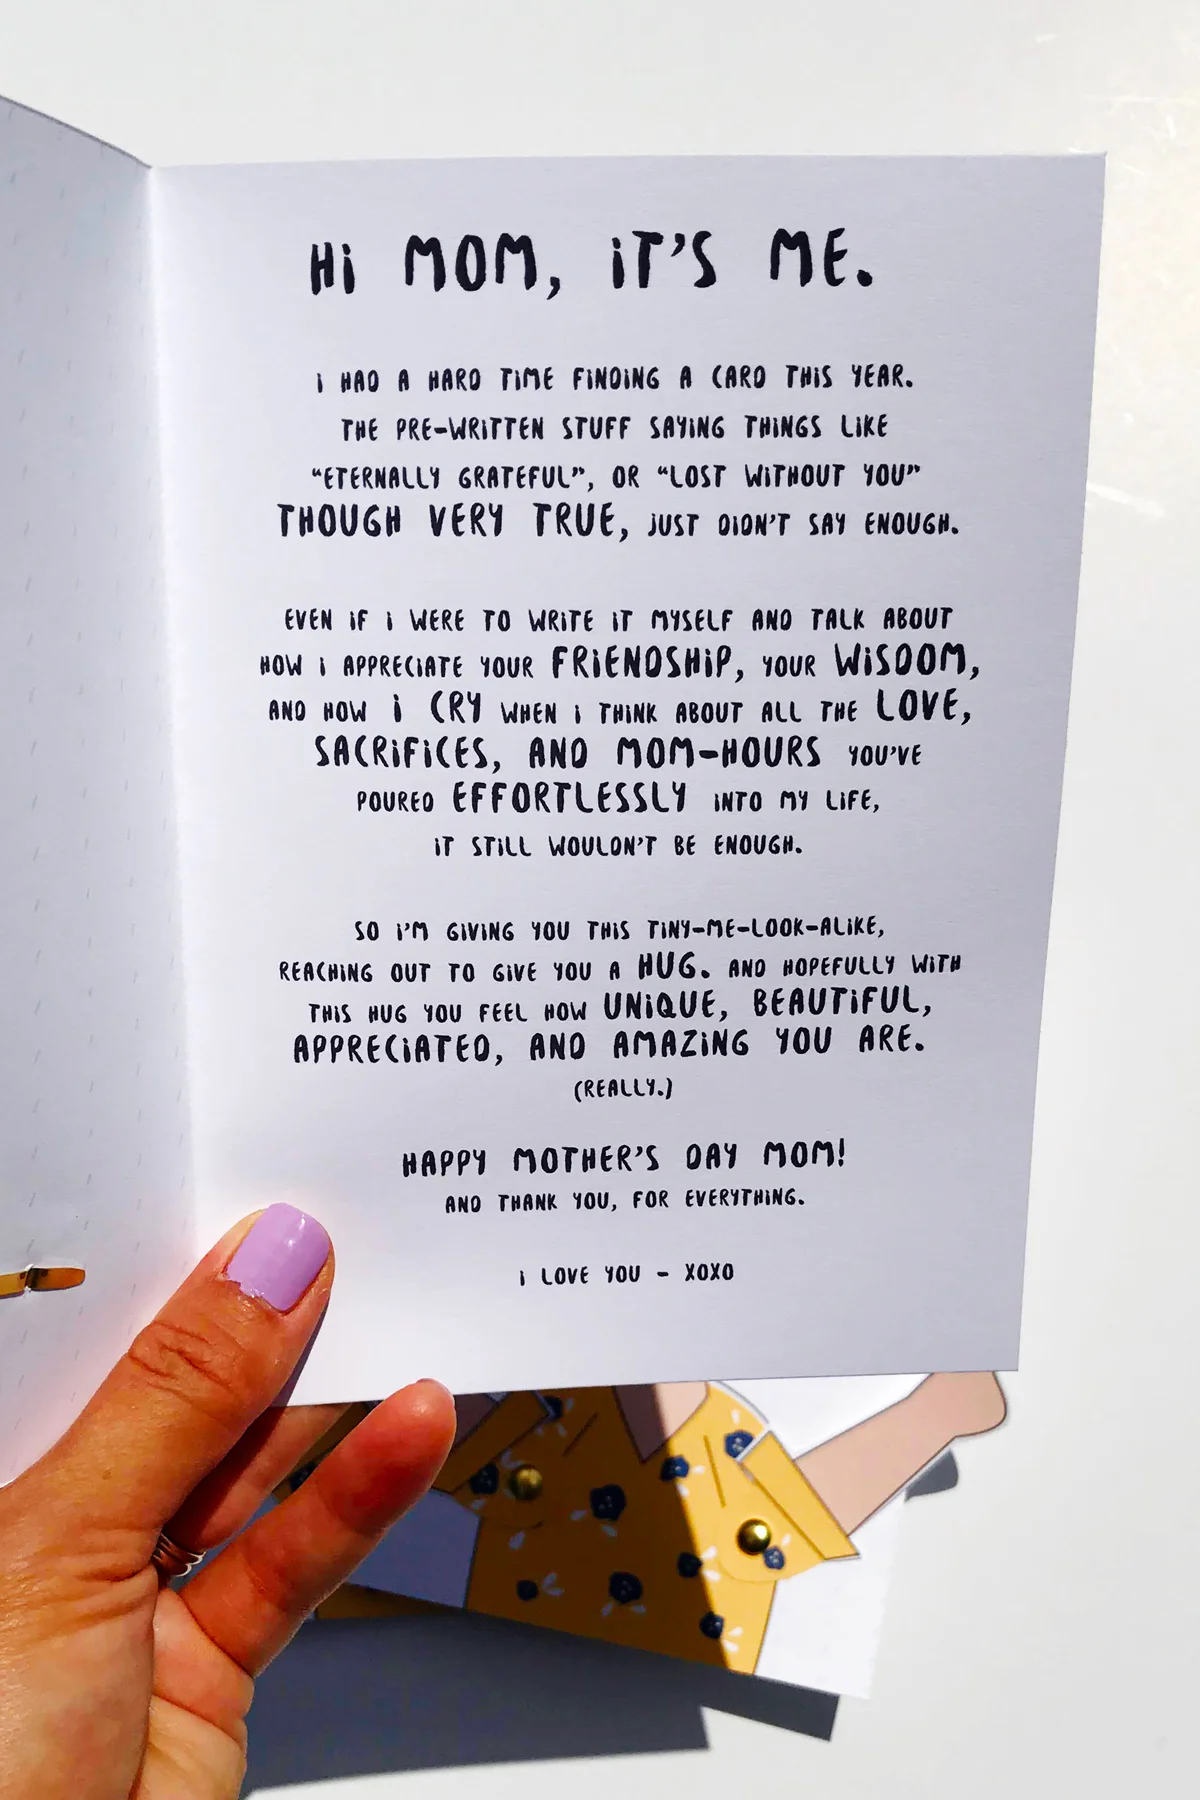 Hi MOM, iT'S ME.
i HAD A HARD TiME FiNDiNG A CARD THiS YEAR.
THE PRE-WRiTTEN STUFF SAYiNG THiNGS LiKE
"ETERNALLY GRATEFUL", OR "LOST WiTHOUT YOU"
THOUGH VERY TRUE, JUST DiDN'T SAY ENOUGH.
EVEN iF i WERE TO WRiTE iT MYSELF AND TALK ABOUT
HOW i APPRECiATE YOUR FRiENDSHiP, YOUR WiSDOM,
AND HOW i CRY WHEN i THiNK ABOUT ALL THE LOVE,
SACRiFiCES, AND MOM-HOURS YOU'VE
POURED EFFORTLESSLY iNTO MY LiFE,
iT STiLL WOULDN'T BE ENOUGH.
SO i'M GiViNG YOU THiS TiNY-ME-LOOK-ALiKE,
REACHiNG OUT TO GiVE YOU A HUG. AND HOPEFULLY WiTH
THiS HUG YOU FEEL HOW UNiQUE, BEAUTiFUL,
APPRECiATED, AND AMAZiNG YOU ARE.
(REALLY.)
HAPPY MOTHER'S DAY MOM!
AND THANK YOU, FOR EVERYTHiNG.
i LOVE YOU - XOXO